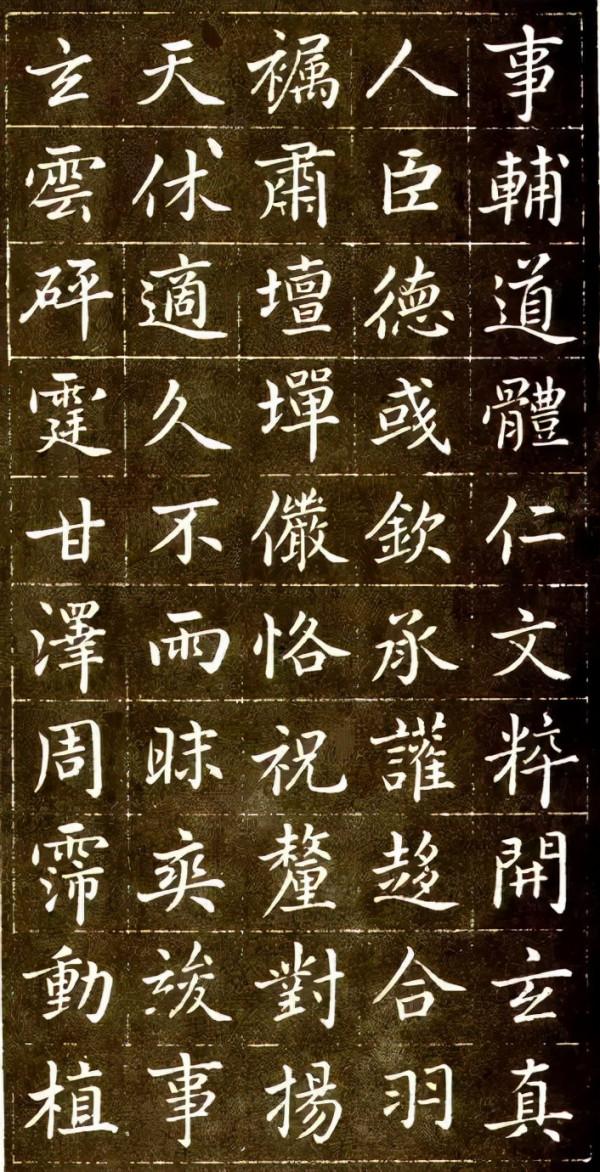 事輔道體仁文粹開玄真
人臣德彧欽承讙趍合羽
褊肅壇墠儼恪祝釐對揚
天休適久不雨眜爽竣事
玄雲砰霆甘澤周霈動植